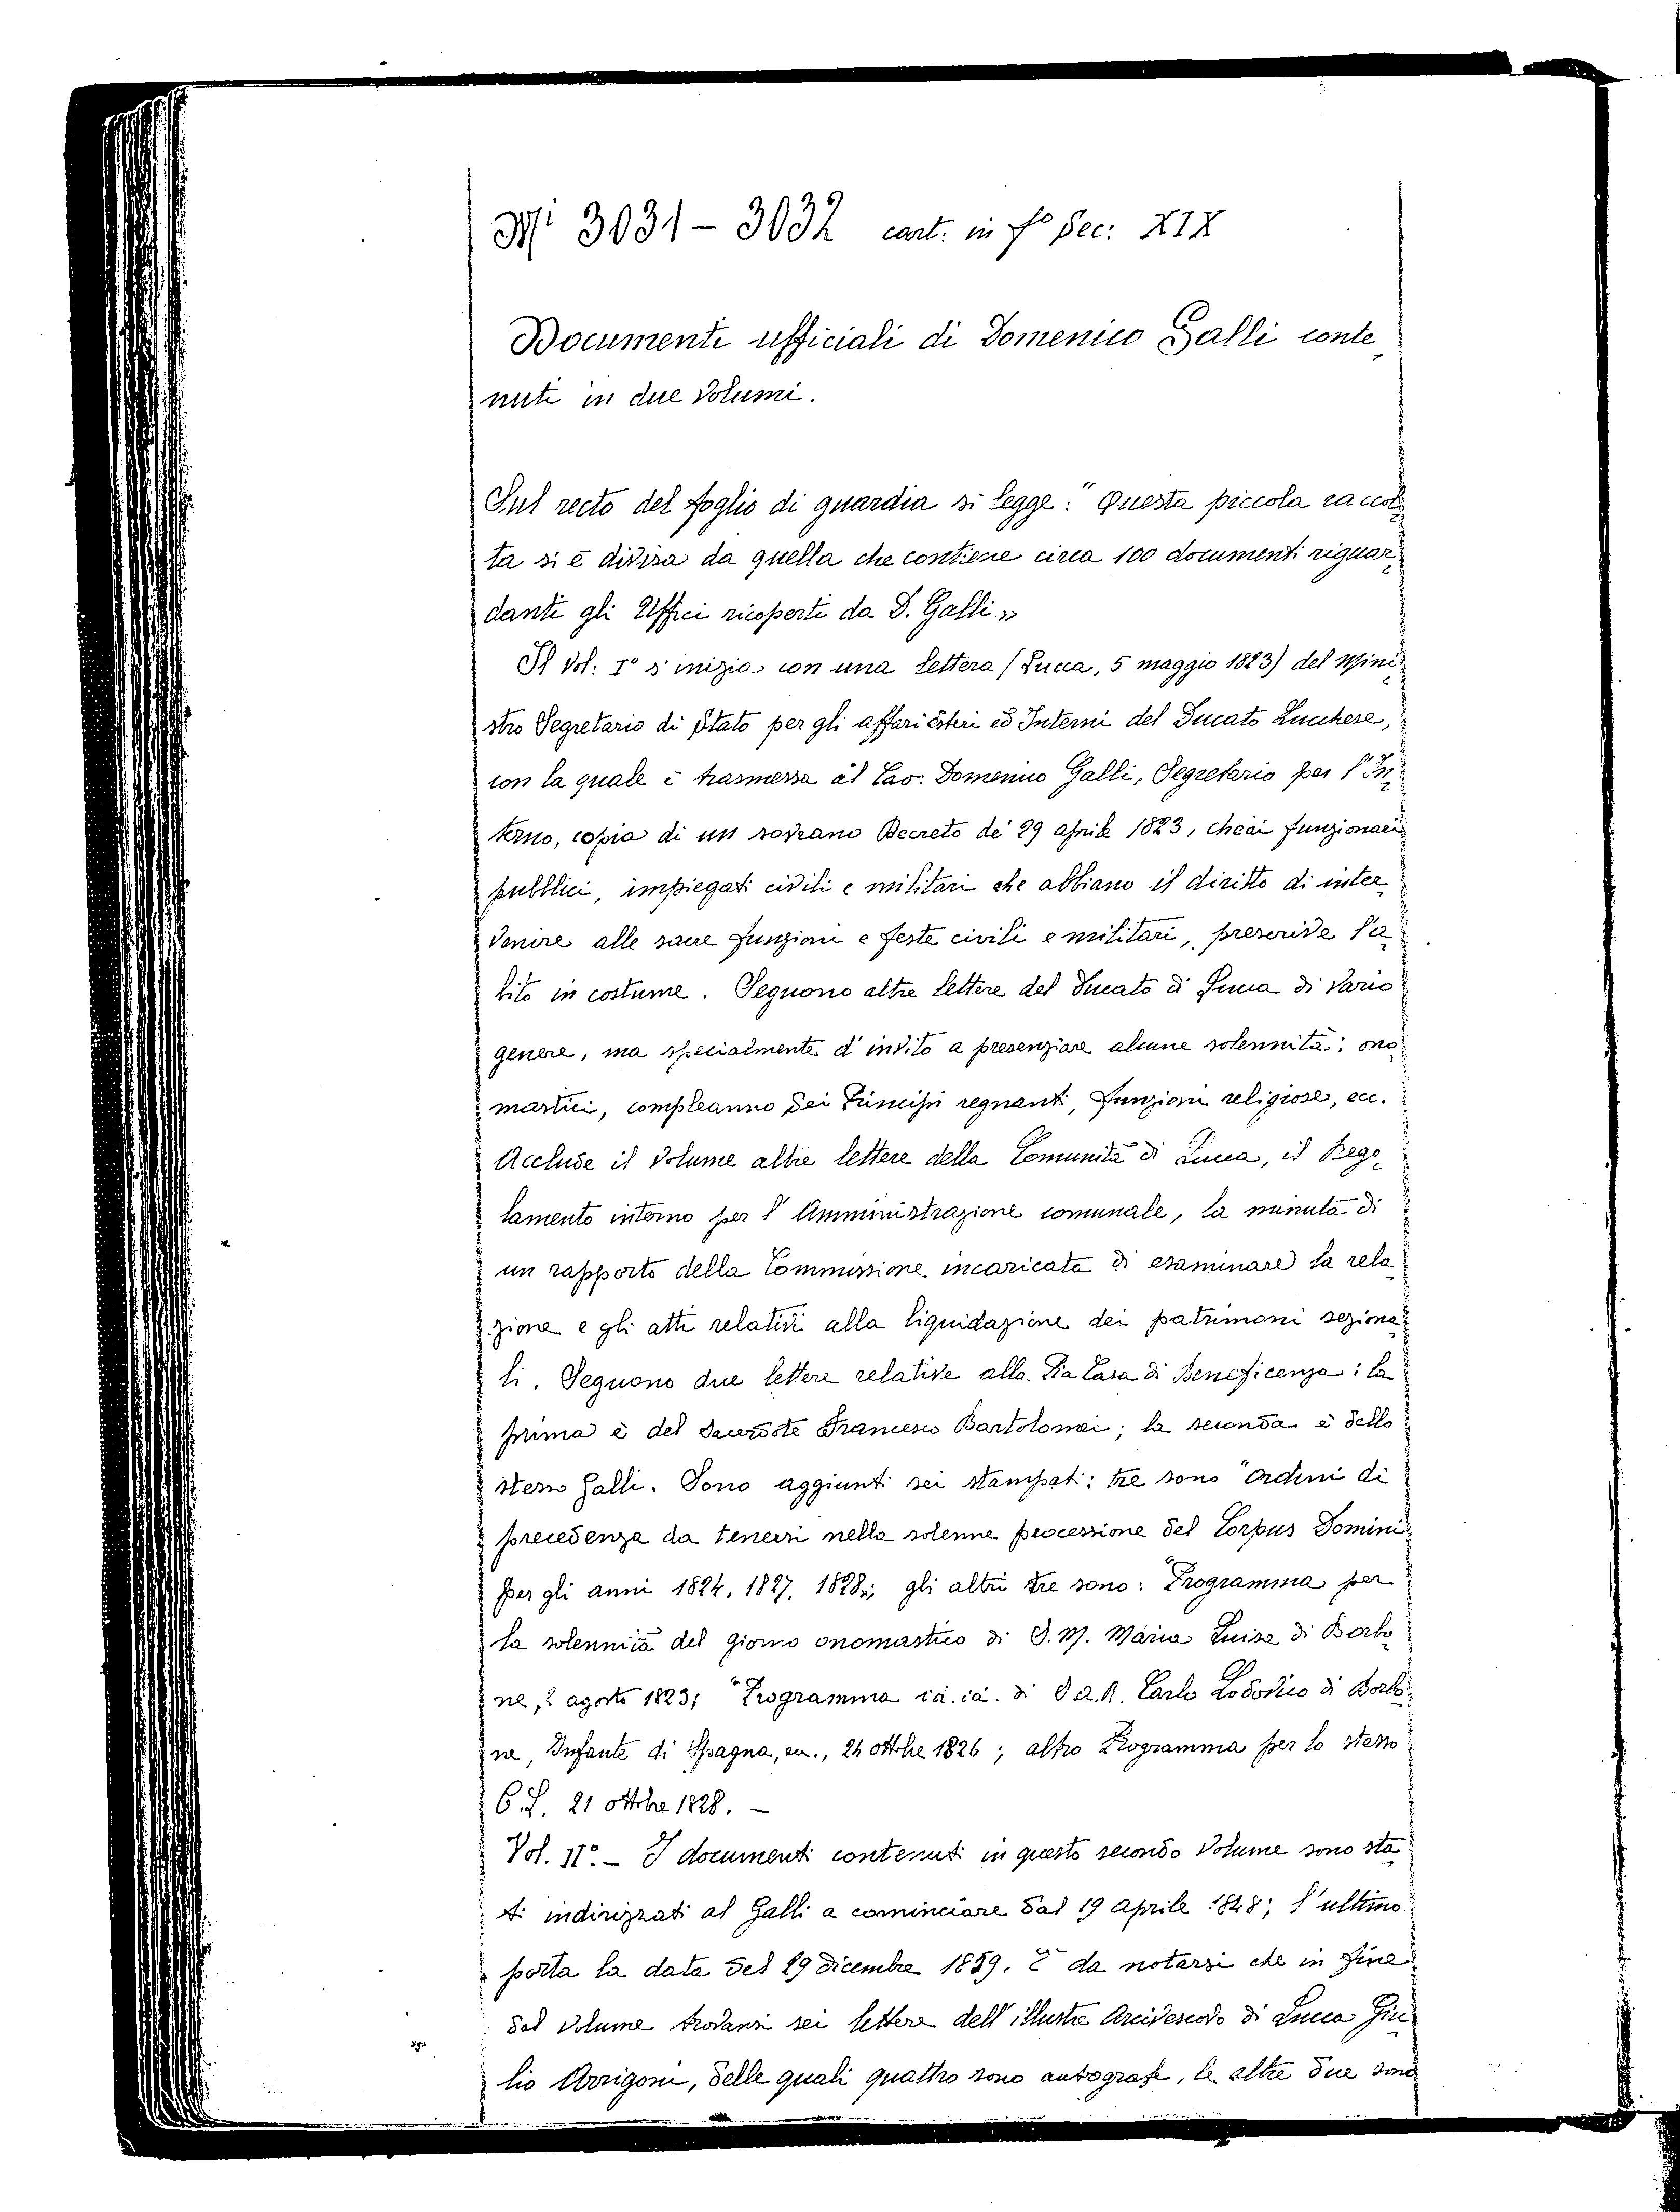 Ni 3031 - 3032 cart. in fo Sec: XIX
Documenti ufficiali di Domenico Galli conte
nuti in due volumi.
Sul recto del foglio di guardia si legge: "Questa piccola raccol
ta si è divisa da quella che contiene circa 100 documenti riguar
danti gli Uffici ricoperti da D. Galli."
Il Vol: I° s'inizia con una lettera (Lucca, 5 maggio 1823) del Mini
stro Segretario di Stato per gli affari esteri ed Interni del Ducato Lucchese,
con la quale è trasmessa al Cav. Domenico Galli, Segretario per l'In
terno, copia di un sovrano Decreto de' 29 aprile 1823, che ai funzionari
pubblici, impiegati civili e militari che abbiano il diritto di inter
venire alle sacre funzioni e feste civili e militari, prescrive l'a
bito in costume. Seguono altre lettere del Ducato di Lucca di vario
genere, ma specialmente d'invito a presenziare alcune solennità: ono
mastici, compleanno dei Principi regnanti, funzioni religiose, ecc.
Acclude il volume altre lettere della Comunità di Lucca, il Rego
lamento interno per l'Amministrazione comunale, la minuta di
un rapporto della Commissione incaricata di esaminare la rela
zione e gli atti relativi alla liquidazione dei patrimoni seziona
li. Seguono due lettere relative alla Pia Casa di Beneficenza: la
prima è del Sacerdote Francesco Bartolomei; la seconda è dello
stesso Galli. Sono aggiunti sei stampati: tre sono "Ordini di
precedenza da tenersi nella solenne processione del Corpus Domini
per gli anni 1824, 1827, 1828"; gli altri tre sono: "Programma per
la solennità del giorno onomastico di S. M. Maria Luisa di Borbo
ne, 2 agosto 1823; "Programma id. id. di S. A. R. Carlo Lodovico di Borbo
ne, Infante di Spagna, ecc., 24 ottobre 1826; altro Programma per lo stesso
C. L. 21 ottobre 1828. —
Vol. II°. — I documenti contenuti in questo secondo volume sono sta
ti indirizzati al Galli a cominciare dal 19 aprile 1848; l'ultimo
porta la data del 29 dicembre 1859. È da notarsi che in fine
del volume trovansi sei lettere dell'illustre Arcivescovo di Lucca Giu
lio Arrigoni, delle quali quattro sono autografe, le altre due sono